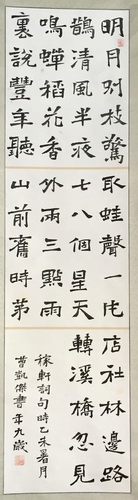 明月別枝驚
鵲清風半夜
鳴蟬稻花香
裏說豐年聽
取蛙聲一片
七八個星天
外兩三點雨
山前舊時茅
店社林邊
轉溪橋忽見
稼軒詞句時乙未暑月
曹凱傑書年九歲